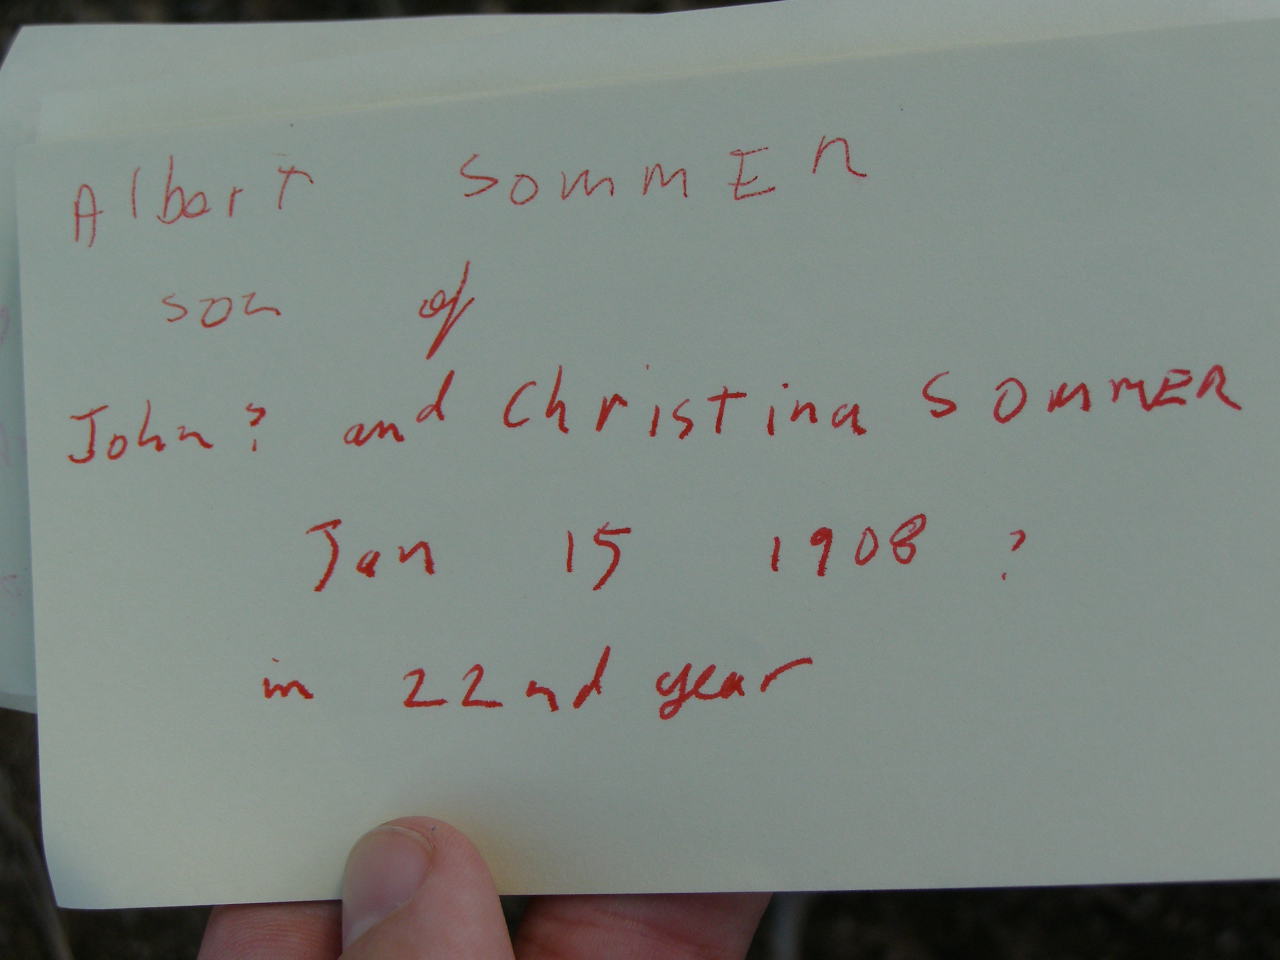 Albert SOMMER
son of
John? and Christina SOMMER
Jan 15 1908 ?
in 22nd year